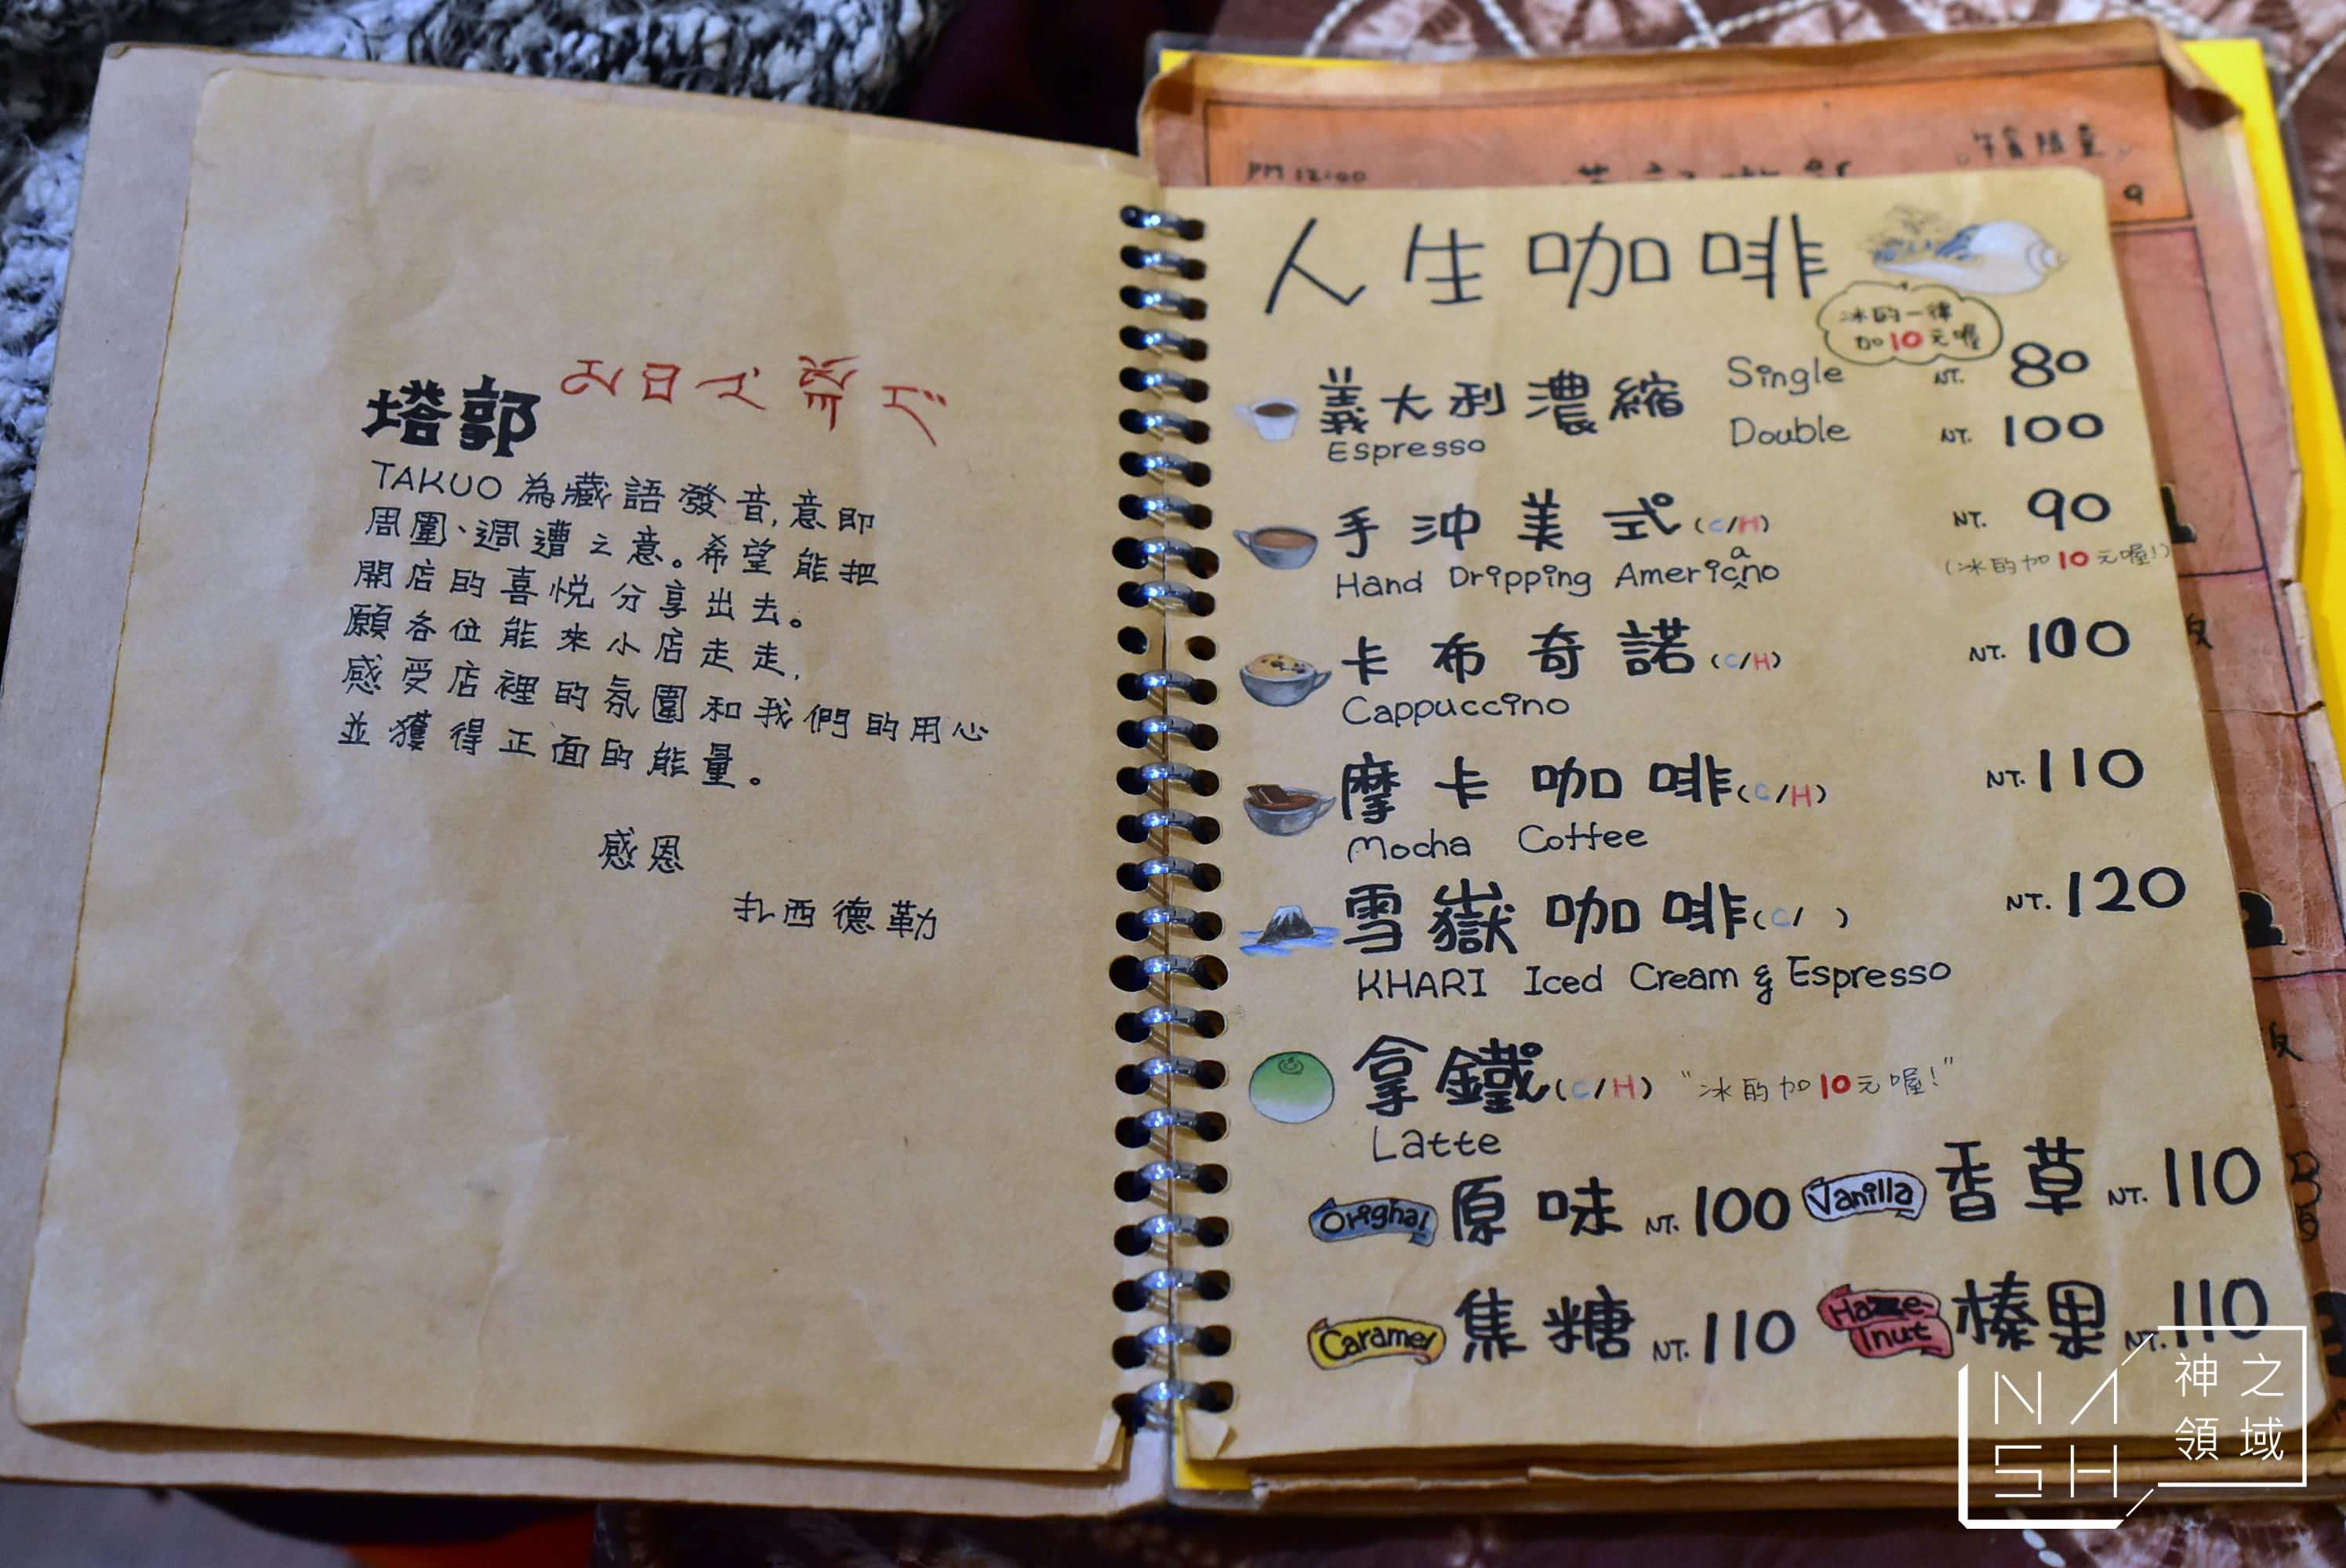 塔郭
TAKUO 為藏語發音,意即
周圍、週遭之意。希望能把
開店的喜悅分享出去。
願各位能來小店走走,
感受店裡的氛圍和我們的用心
並獲得正面的能量。
感恩
扎西德勒
PM 12:00
人生咖啡
冰的一律
加10元喔
義大利濃縮 Single NT. 80
Espresso Double NT. 100
手沖美式(C/H) NT. 90
Hand Dripping Americano (冰的加10元喔!)
卡布奇諾(C/H) NT. 100
Cappuccino
摩卡咖啡(C/H) NT. 110
Mocha Coffee
雪嶽咖啡(C/ ) NT. 120
KHARI Iced Cream & Espresso
拿鐵(C/H) "冰的加10元喔!"
Latte
Original 原味 NT. 100 Vanilla 香草 NT. 110
Caramel 焦糖 NT. 110 Haze-lnut 榛果 NT. 110
NASH 神之領域